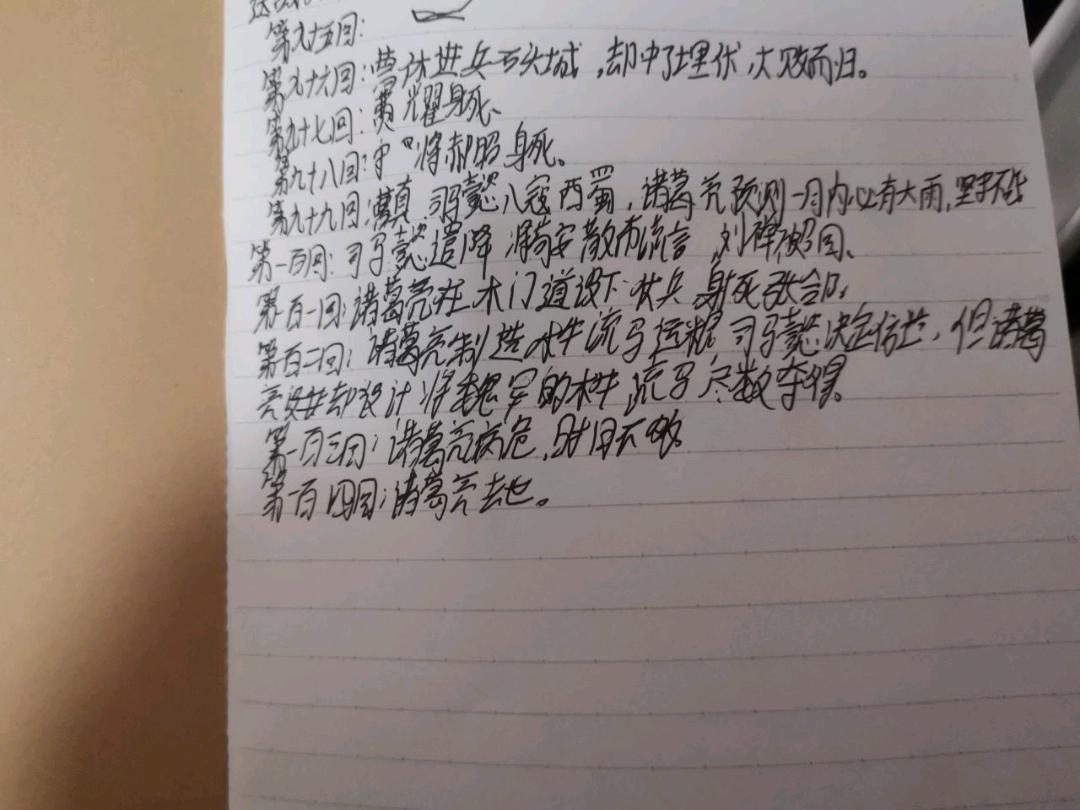 第九十五回：
第九十六回：曹休进兵石头城，却中了埋伏，大败而归。
第九十七回：黄耀身死、
第九十八回：守将郝昭身死。
第九十九回：曹真 司马懿入寇西蜀，诸葛亮预测一月内必有大雨，坚守不出
第一百回：司马懿遣降将苟安散布流言，刘禅 回、
第百一回：诸葛亮在木门道设下伏兵 射死张郃。
第百二回：诸葛亮制造木牛流马运粮 司马懿决定仿芒，但诸葛
亮 却设计将魏军的木牛流马尽数夺得。
第一百三回：诸葛亮病危，时日不
第一百四回：诸葛亮去世。